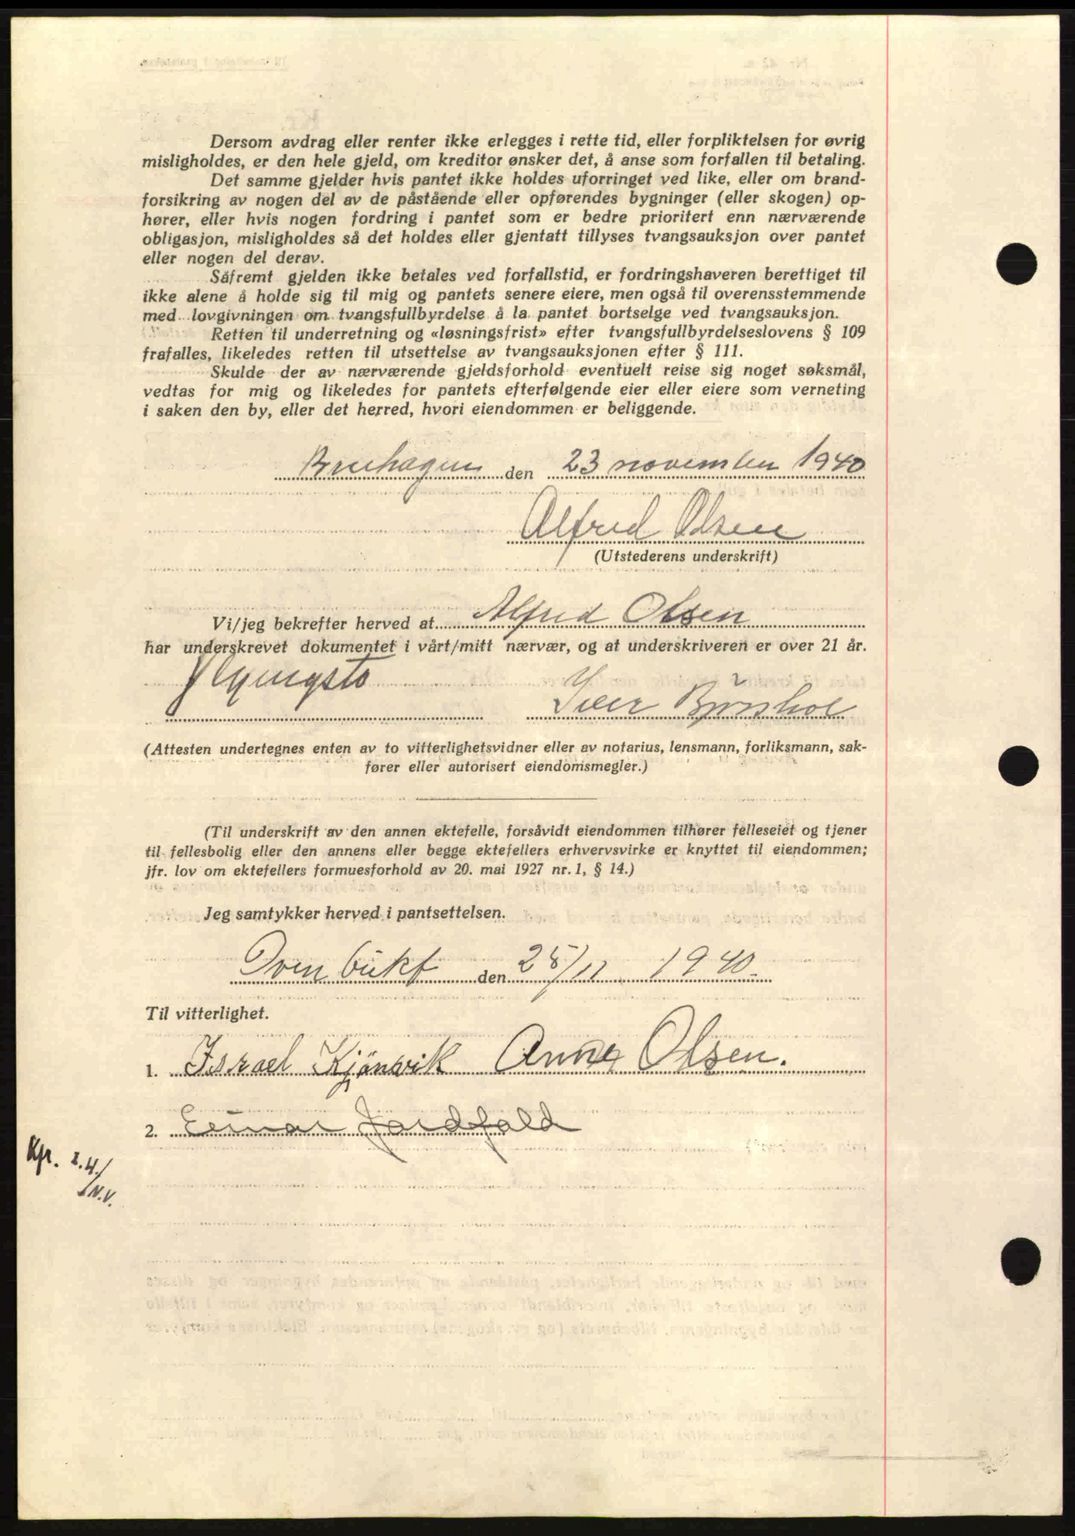 Dersom avdrag eller renter ikke erlegges i rette tid, eller forpliktelsen for øvrig
misligholdes, er den hele gjeld, om kreditor ønsker det, å anse som forfallen til betaling.
Det samme gjelder hvis pantet ikke holdes uforringet ved like, eller om brand-
forsikring av nogen del av de påstående eller opførendes bygninger (eller skogen) op-
hører, eller hvis nogen fordring i pantet som er bedre prioritert enn nærværende
obligasjon, misligholdes så det holdes eller gjentatt tillyses tvangsauksjon over pantet
eller nogen del derav.
Såfremt gjelden ikke betales ved forfallstid, er fordringshaveren berettiget til
ikke alene å holde sig til mig og pantets senere eiere, men også til overensstemmende
med lovgivningen om tvangsfullbyrdelse å la pantet bortselge ved tvangsauksjon.
Retten til underretning og «løsningsfrist» efter tvangsfullbyrdelseslovens § 109
frafalles, likeledes retten til utsettelse av tvangsauksjonen efter § 111.
Skulde der av nærværende gjeldsforhold eventuelt reise sig noget søksmål,
vedtas for mig og likeledes for pantets efterfølgende eier eller eiere som verneting
i saken den by, eller det herred, hvori eiendommen er beliggende.
den 23 november 1940
Alfred Olsen
(Utstederens underskrift)
Vi/jeg bekrefter herved at Alfred Olsen
har underskrevet dokumentet i vårt/mitt nærvær, og at underskriveren er over 21 år.
Iver
(Attesten undertegnes enten av to vitterlighetsvidner eller av notarius, lensmann, forliksmann, sak-
fører eller autorisert eiendomsmegler.)
(Til underskrift av den annen ektefelle, forsåvidt eiendommen tilhører felleseiet og tjener
til fellesbolig eller den annens eller begge ektefellers erhvervsvirke er knyttet til eiendommen;
jfr. lov om ektefellers formuesforhold av 20. mai 1927 nr. 1, § 14.)
Jeg samtykker herved i pantsettelsen.
den 25/11 1940.
Til vitterlighet.
1. Israel Kjönsvik Anna Olsen.
2. Einar Jordfald
Kfr. I.4./
/N.V.